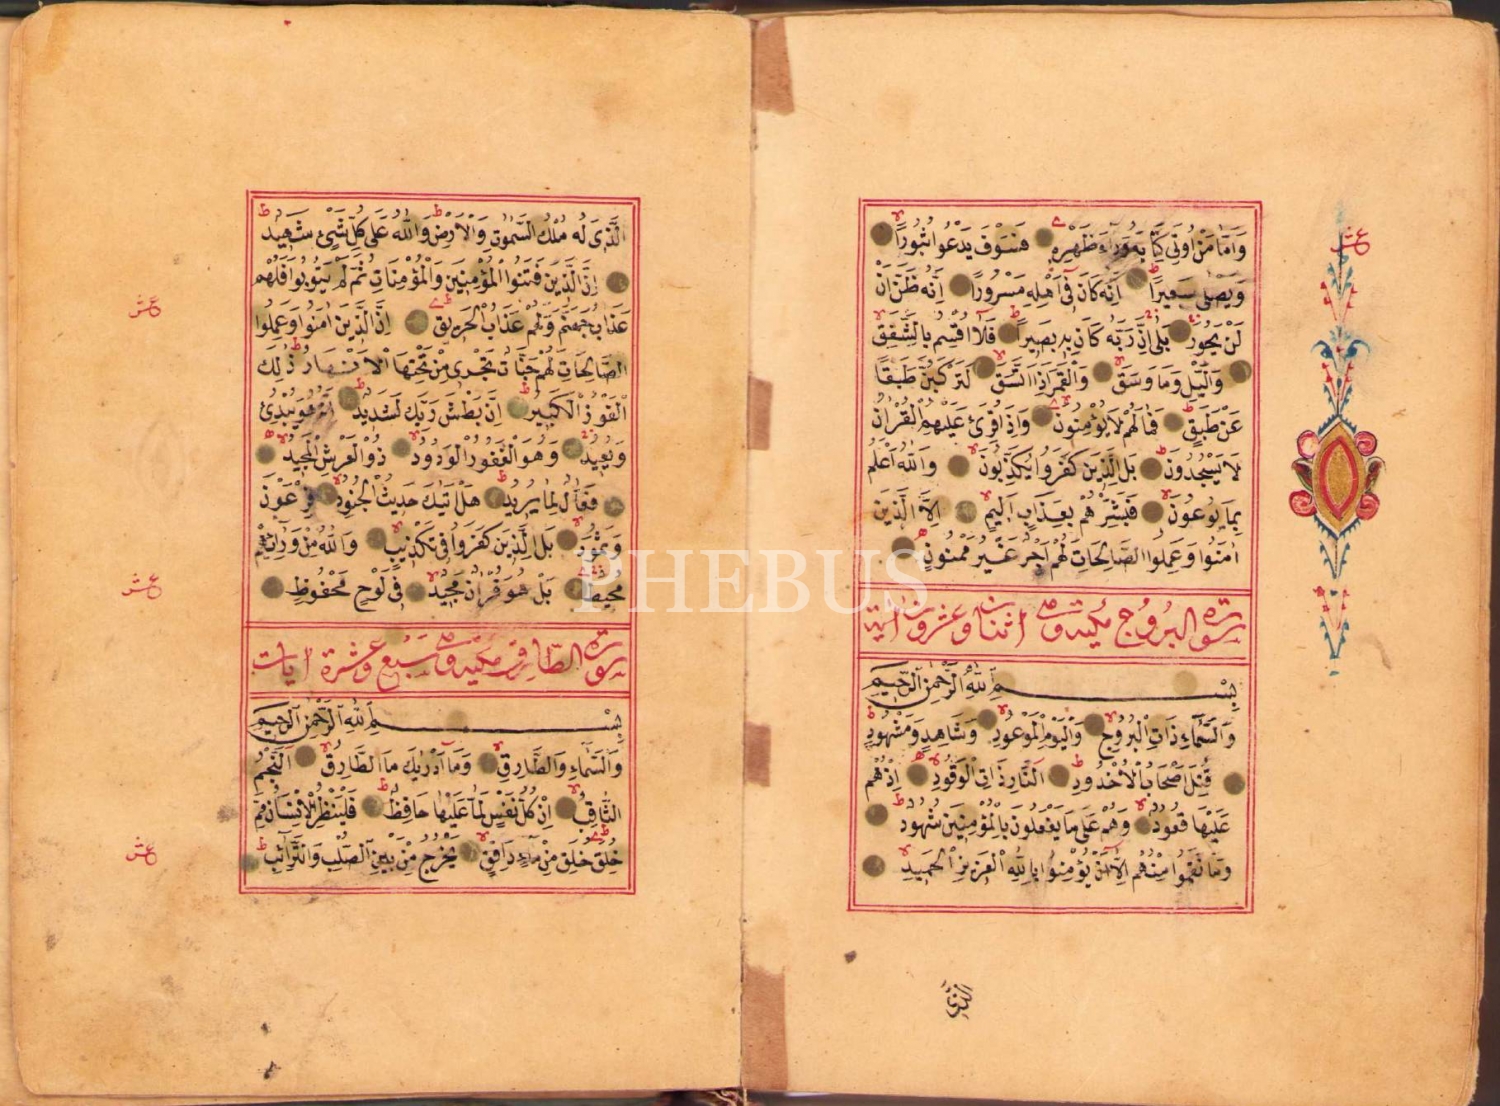 وَاَمَّا مَنْ اُوتِىَ كِتَابَهُ وَرَآءَ ظَهْرِهِ فَسَوْفَ يَدْعُوا ثُبُورًا
وَيَصْلٰى سَعِيرًا اِنَّهُ كَانَ فِى اَهْلِهِ مَسْرُورًا اِنَّهُ ظَنَّ اَنْ
لَنْ يَحُورَ بَلٰى اِنَّ رَبَّهُ كَانَ بِهِ بَصِيرًا فَلَا اُقْسِمُ بِالشَّفَقِ
وَالَّيْلِ وَمَا وَسَقَ وَالْقَمَرِ اِذَا اتَّسَقَ لَتَرْكَبُنَّ طَبَقًا
عَنْ طَبَقٍ فَمَا لَهُمْ لَا يُؤْمِنُونَ وَاِذَا قُرِئَ عَلَيْهِمُ الْقُرْاٰنُ
لَا يَسْجُدُونَ بَلِ الَّذِينَ كَفَرُوا يُكَذِّبُونَ وَاللّٰهُ اَعْلَمُ
بِمَا يُوعُونَ فَبَشِّرْهُمْ بِعَذَابٍ اَلِيمٍ اِلَّا الَّذِينَ
اٰمَنُوا وَعَمِلُوا الصَّالِحَاتِ لَهُمْ اَجْرٌ غَيْرُ مَمْنُونٍ
سورة البروج مكية وهى اثنتان وعشرون اية
بِسْمِ اللّٰهِ الرَّحْمٰنِ الرَّحِيمِ
وَالسَّمَآءِ ذَاتِ الْبُرُوجِ وَالْيَوْمِ الْمَوْعُودِ وَشَاهِدٍ وَمَشْهُودٍ
قُتِلَ اَصْحَابُ الْاُخْدُودِ اَلنَّارِ ذَاتِ الْوَقُودِ اِذْ هُمْ
عَلَيْهَا قُعُودٌ وَهُمْ عَلٰى مَا يَفْعَلُونَ بِالْمُؤْمِنِينَ شُهُودٌ
وَمَا نَقَمُوا مِنْهُمْ اِلَّا اَنْ يُؤْمِنُوا بِاللّٰهِ الْعَزِيزِ الْحَمِيدِ
الذى
عشر
الَّذِى لَهُ مُلْكُ السَّمٰوَاتِ وَالْاَرْضِ وَاللّٰهُ عَلٰى كُلِّ شَىْءٍ شَهِيدٌ
اِنَّ الَّذِينَ فَتَنُوا الْمُؤْمِنِينَ وَالْمُؤْمِنَاتِ ثُمَّ لَمْ يَتُوبُوا فَلَهُمْ
عَذَابُ جَهَنَّمَ وَلَهُمْ عَذَابُ الْحَرِيقِ اِنَّ الَّذِينَ اٰمَنُوا وَعَمِلُوا
الصَّالِحَاتِ لَهُمْ جَنَّاتٌ تَجْرِى مِنْ تَحْتِهَا الْاَنْهَارُ ذٰلِكَ
الْفَوْزُ الْكَبِيرُ اِنَّ بَطْشَ رَبِّكَ لَشَدِيدٌ اِنَّهُ هُوَ يُبْدِئُ
وَيُعِيدُ وَهُوَ الْغَفُورُ الْوَدُودُ ذُو الْعَرْشِ الْمَجِيدُ
فَعَّالٌ لِمَا يُرِيدُ هَلْ اَتٰيكَ حَدِيثُ الْجُنُودِ فِرْعَوْنَ
وَثَمُودَ بَلِ الَّذِينَ كَفَرُوا فِى تَكْذِيبٍ وَاللّٰهُ مِنْ وَرَآئِهِمْ
مُحِيطٌ بَلْ هُوَ قُرْاٰنٌ مَجِيدٌ فِى لَوْحٍ مَحْفُوظٍ
سورة الطارق مكية وهى سبع وعشرة ايات
بِسْمِ اللّٰهِ الرَّحْمٰنِ الرَّحِيمِ
وَالسَّمَآءِ وَالطَّارِقِ وَمَآ اَدْرٰيكَ مَا الطَّارِقُ اَلنَّجْمُ
الثَّاقِبُ اِنْ كُلُّ نَفْسٍ لَمَّا عَلَيْهَا حَافِظٌ فَلْيَنْظُرِ الْاِنْسَانُ مِمَّ
خُلِقَ خُلِقَ مِنْ مَآءٍ دَافِقٍ يَخْرُجُ مِنْ بَيْنِ الصُّلْبِ وَالتَّرَآئِبِ
عشر
عشر
عشر
PHEBUS